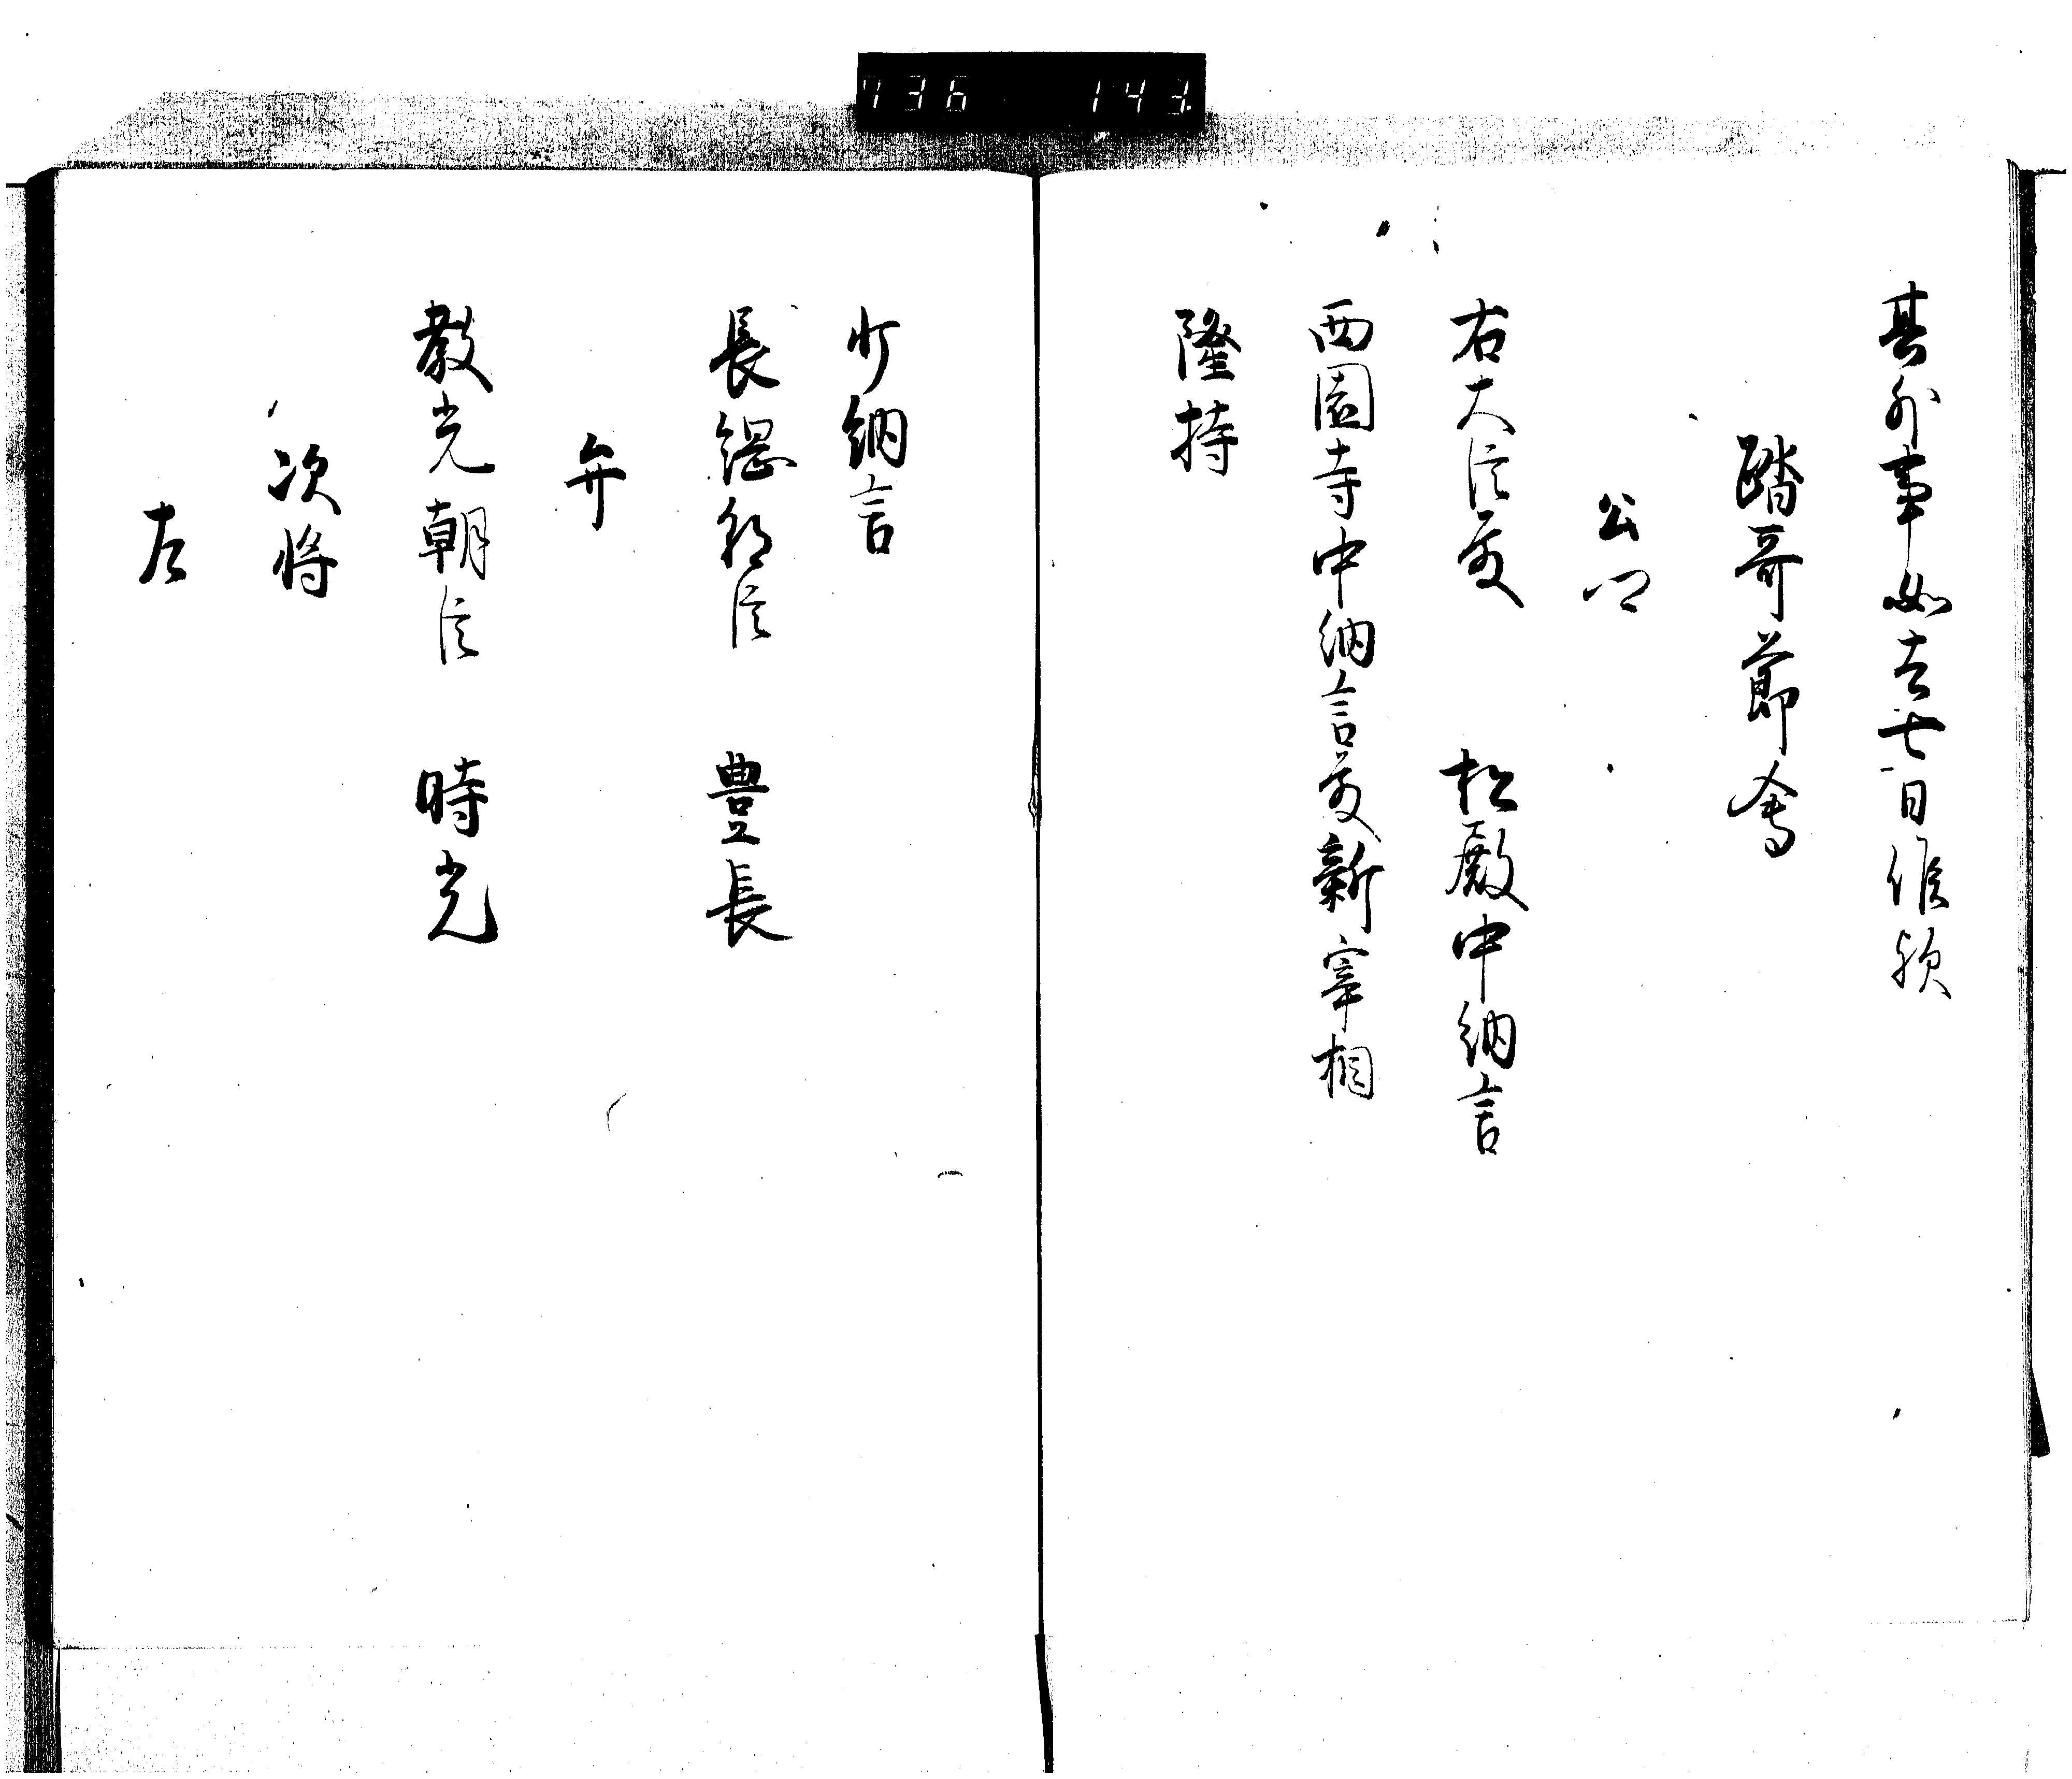 其外事如去七日作歟
踏哥節會
公卿
右大臣殿 松殿中納言
西園寺中納言殿新宰相
隆持
少納言
長綱朝臣 豊長
弁
教光朝臣 時光
次将
左
736 143